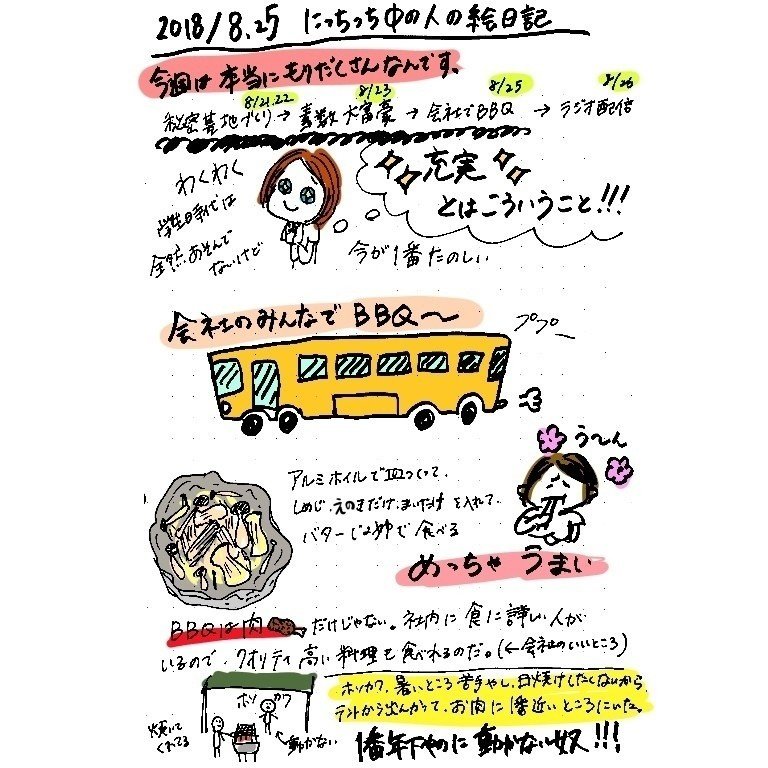 2018/8.25 にっちっち中の人の絵日記
今週は本当にもりだくさんなんです。
8/21.22 8/23 8/25 8/26
秘密基地づくり→素数大富豪→会社でBBQ→ラジオ配信
わくわく
学生時代は
全然あそんで
ないけど
充実
とはこういうこと!!!
今が1番たのしい
会社のみんなでBBQ〜
プププー
う〜ん
アルミホイルで皿つくって、
しめじ、えのきだけ、まいたけを入れて、
バターじょうゆで食べる
めっちゃうまい
BBQは肉だけじゃない。社内に食に詳しい人が
いるので、クオリティ高い料理も食べれるのだ。(←会社のいいところ)
ホソカワ、暑いところ苦手やし、日焼けしたくないから
テントから出んかって、お肉に1番近いところにいた。
ホソカワ
焼いて
くれてる
←動かない
1番年下やのに動かない奴!!!